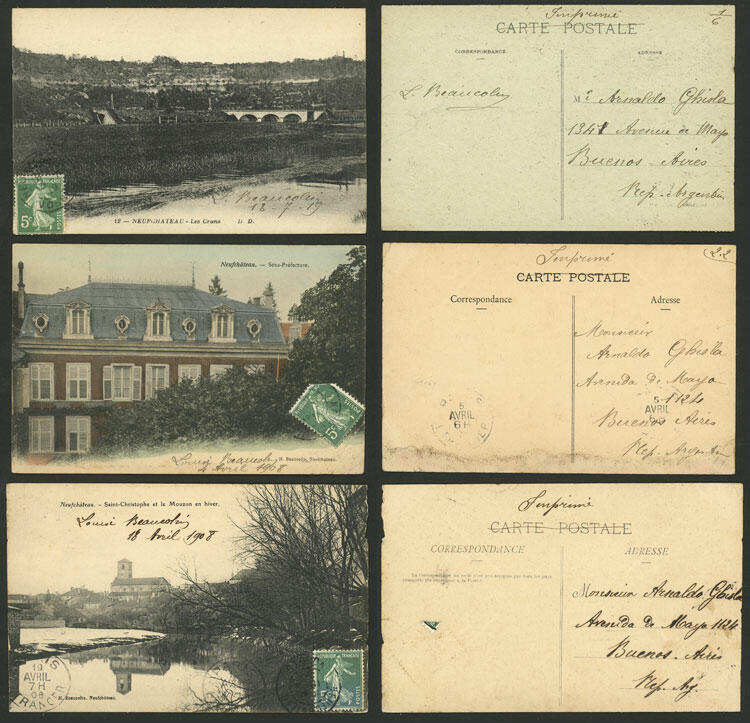 5c
L. Beaucolin
18-7-17
12 - NEUFCHATEAU - Les Crans D. D.
Imprimé
1/6
CARTE POSTALE
CORRESPONDANCE
ADRESSE
L. Beaucolin
Mr Arnaldo Ghisla
1347 Avenue de Mayo
Buenos-Aires
Rep. Argentin
Neufchâteau. — Sous-Préfecture.
5c
Louise Beaucolin
4 Avril 1908
H. Beaucolin, Neufchâteau.
Imprimé
2.2
CARTE POSTALE
Correspondance
Adresse
Monsieur
Arnaldo Ghisla
Avenida de Mayo
1124
Buenos Aires
Rep. Argentin
5
AVRIL
6H
5
AVRIL
Neufchâteau. - Saint-Christophe et le Mouzon en hiver.
Louise Beaucolin
18 Avril 1908
19
AVRIL
7H
08
H. Beaucolin, Neufchâteau.
5c
Imprimé
CARTE POSTALE
CORRESPONDANCE
ADRESSE
Monsieur Arnaldo Ghisla
Avenida de Mayo 1124
Buenos-Aires
Rep. Arg.